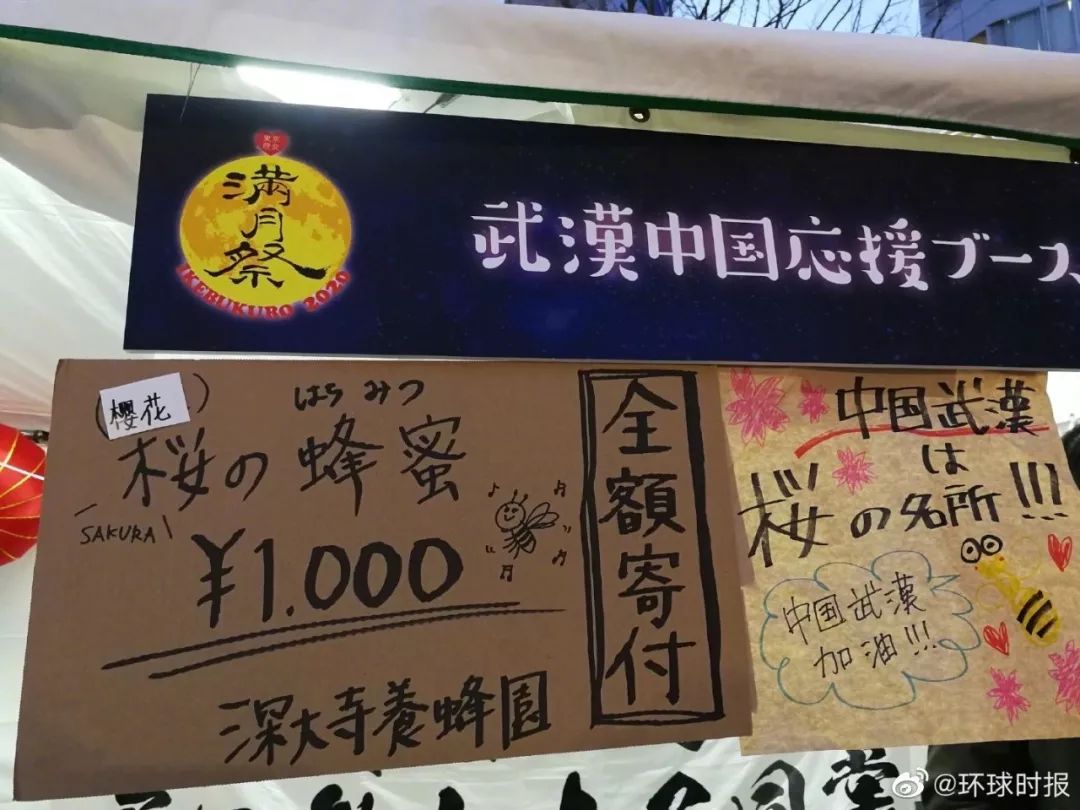 東京
満月祭
IKEBUKURO 2020
武漢中国応援ブース
(樱花)
はちみつ
桜の蜂蜜
SAKURA
¥1.000
深大寺養蜂園
全額寄付
中国武漢
は
桜の名所!!!
中国武漢
加油!!!
@环球时报